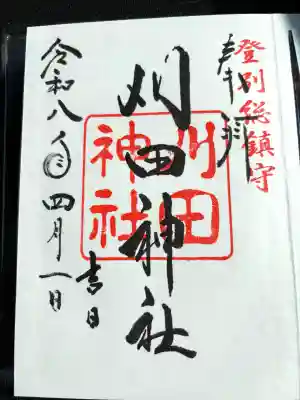 登別総鎮守
奉拝
刈田神社
刈田
神社
令和八年四月一日
吉日